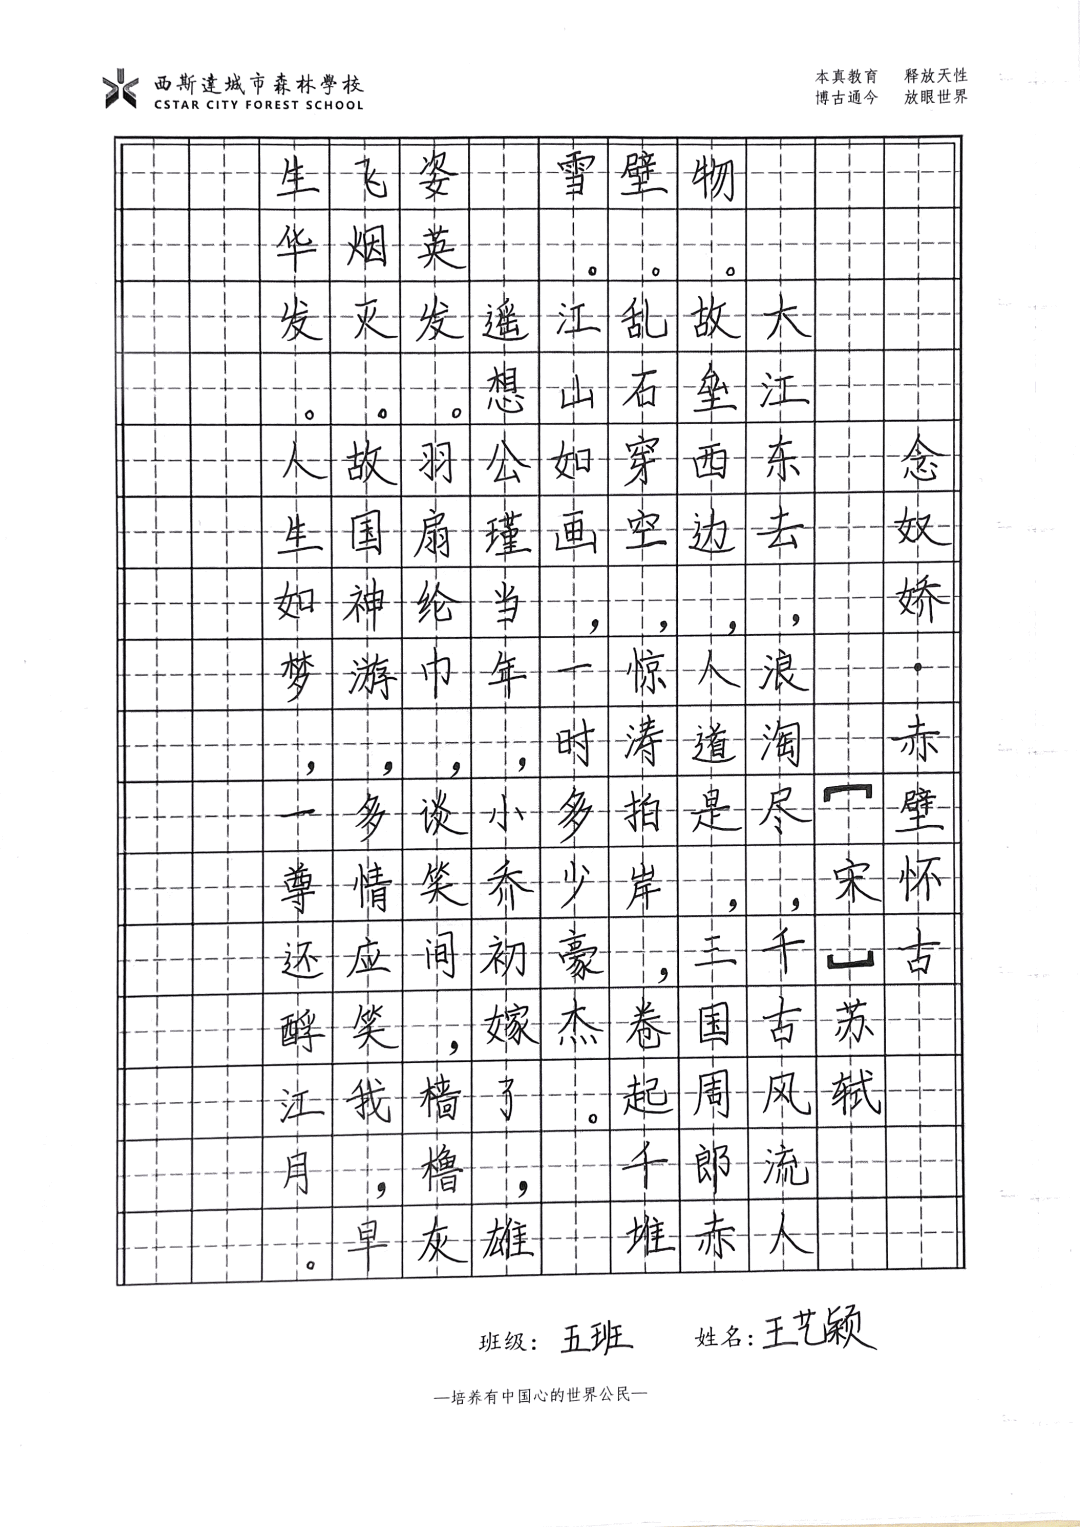 西斯達城市森林學校
CSTAR CITY FOREST SCHOOL
本真教育 释放天性
博古通今 放眼世界
念奴娇·赤壁怀古
[宋]苏轼
大江东去，浪淘尽，千古风流人
物。故垒西边，人道是，三国周郎赤
壁。乱石穿空，惊涛拍岸，卷起千堆
雪。江山如画，一时多少豪杰。
遥想公瑾当年，小乔初嫁了，雄
姿英发。羽扇纶巾，谈笑间，樯橹灰
飞烟灭。故国神游，多情应笑我，早
生华发。人生如梦，一尊还酹江月。
班级：五班 姓名：王艺颖
—培养有中国心的世界公民—